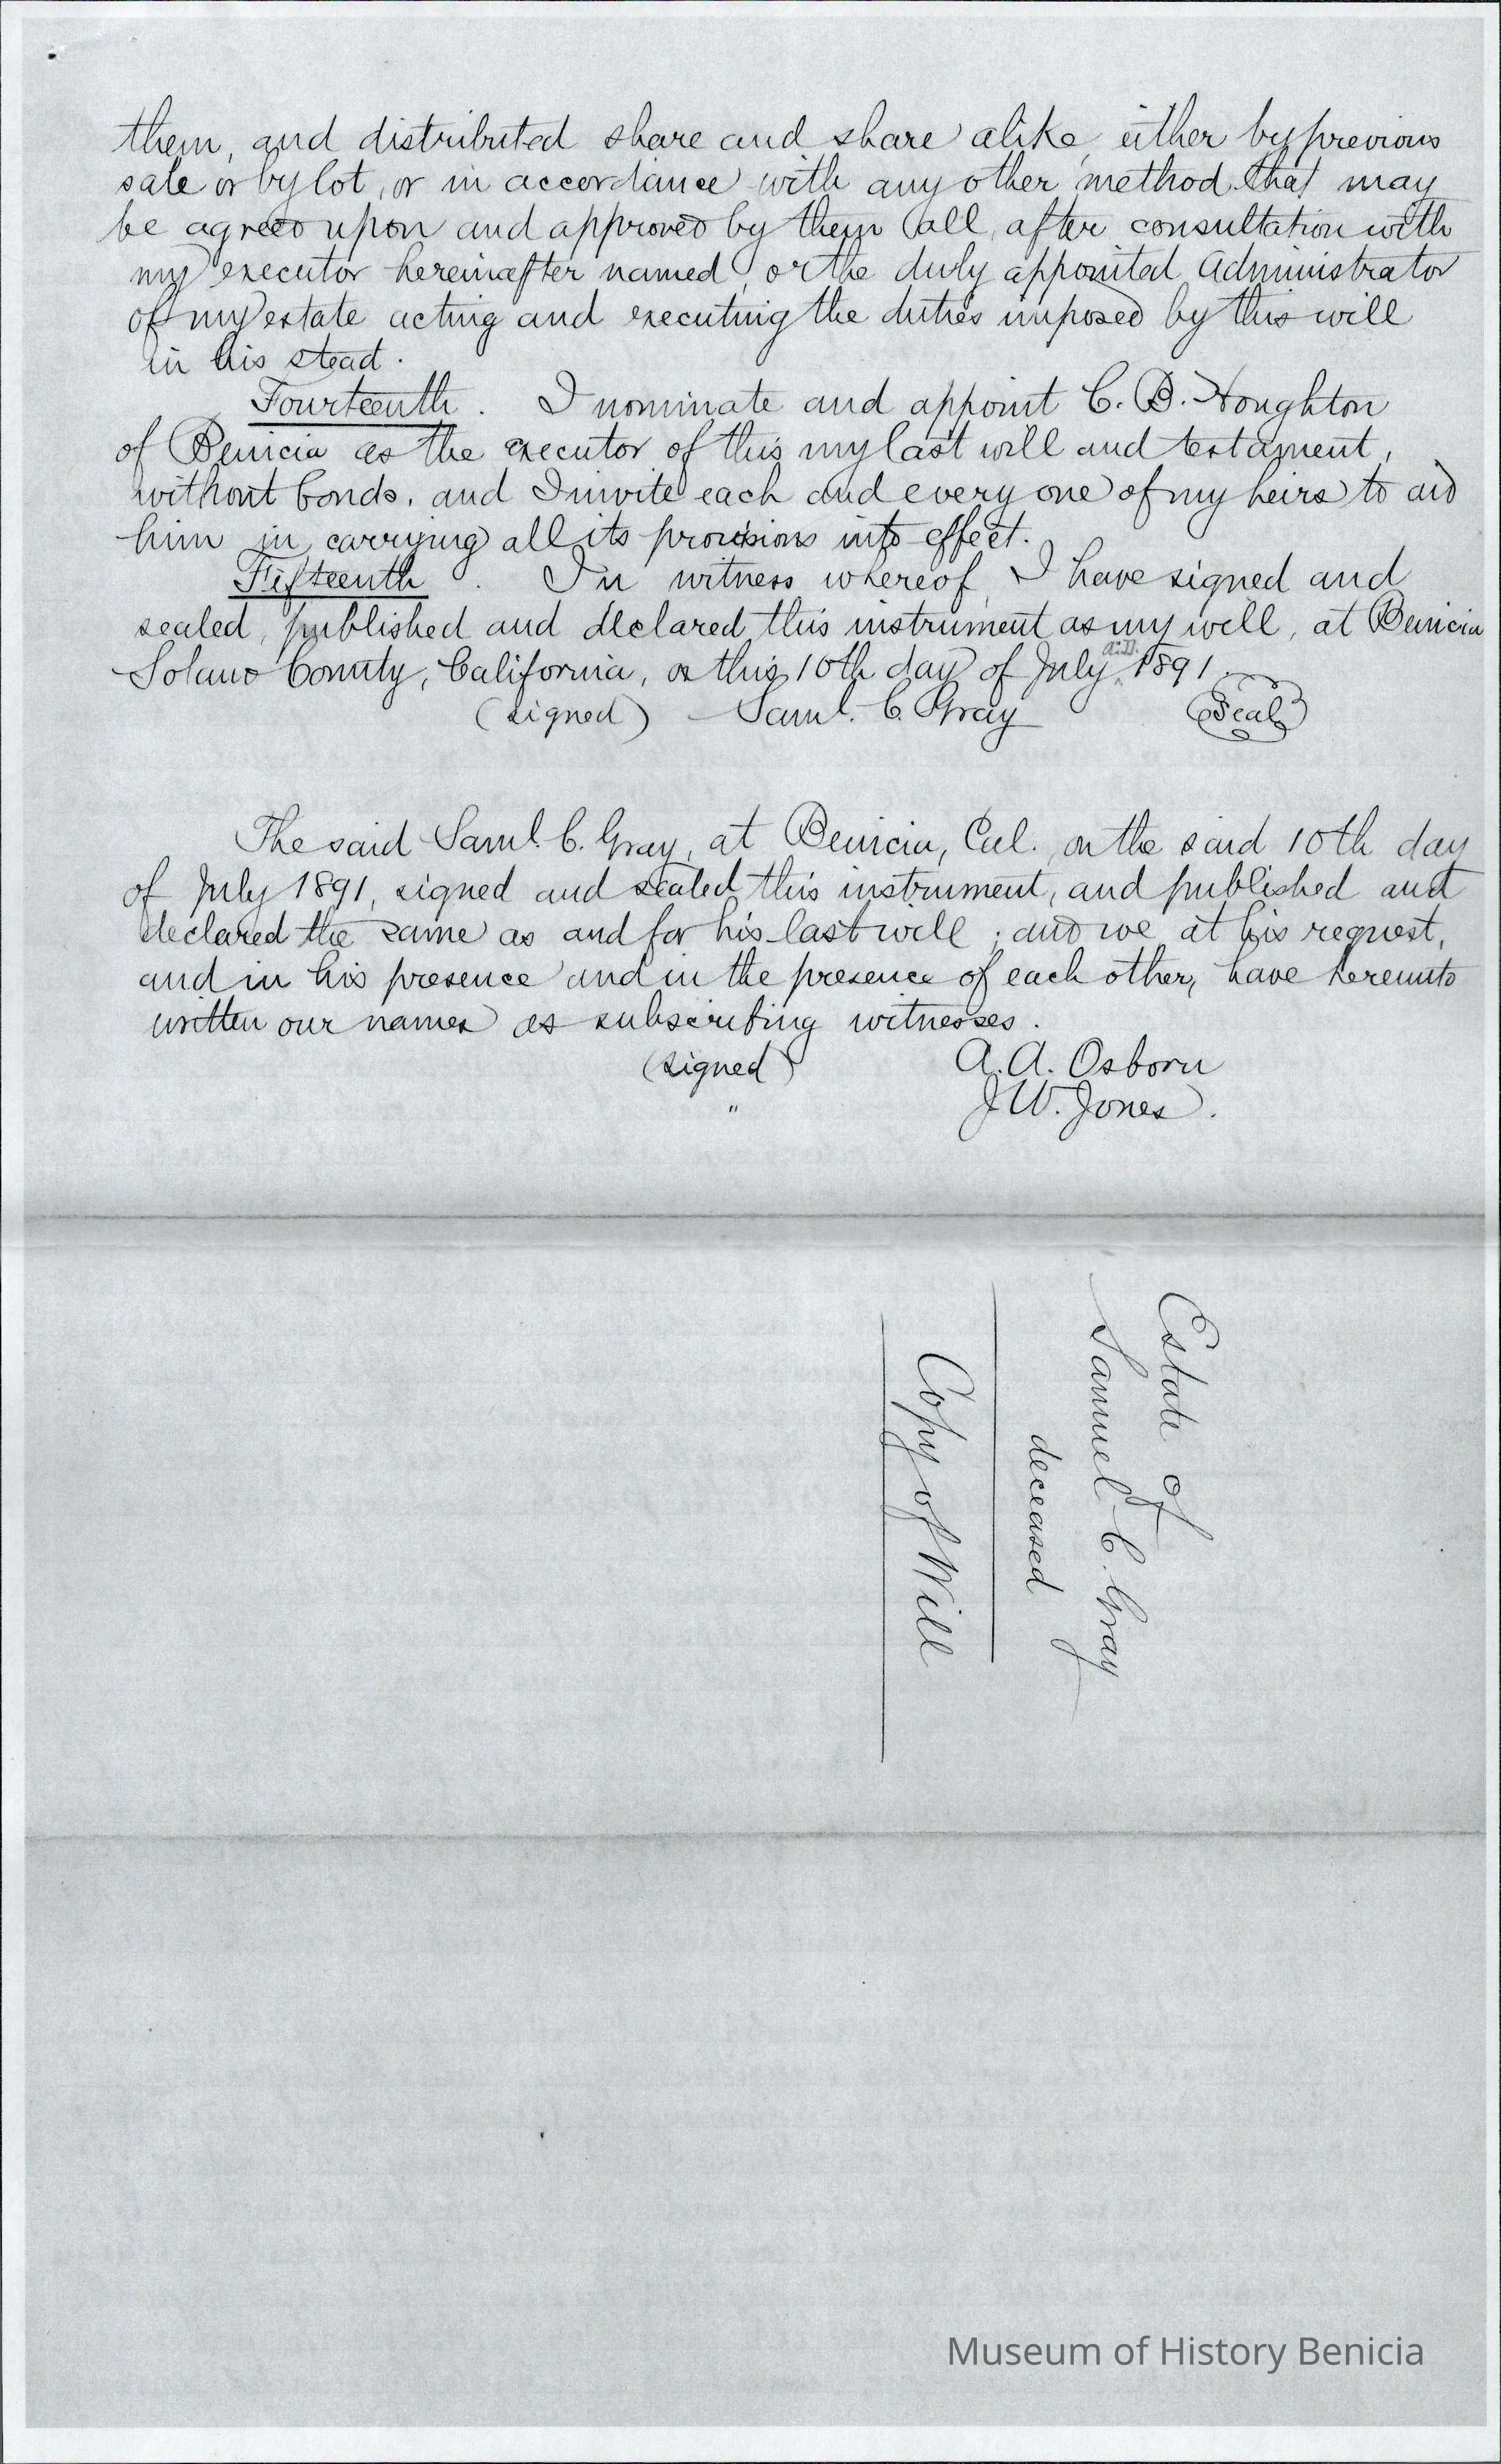 them, and distributed share and share alike, either by previous
sale or by lot, or in accordance with any other method that may
be agreed upon and approved by them all, after consultation with
my executor hereinafter named, or the duly appointed administrator
of my estate acting and executing the duties imposed by this will
in his stead.
Fourteenth. I nominate and appoint C. B. Houghton
of Benicia as the executor of this my last will and testament,
without bonds, and I invite each and every one of my heirs to aid
him in carrying all its provisions into effect.
Fifteenth. In witness whereof, I have signed and
sealed, published and declared this instrument as my will, at Benicia
Solano County, California, on this 10th day of July, A.D. 1891.
(signed) Saml. C. Gray Seal
The said Saml. C. Gray, at Benicia, Cal., on the said 10th day
of July 1891, signed and sealed this instrument, and published and
declared the same as and for his last will; and we at his request,
and in his presence and in the presence of each other, have hereunto
written our names as subscribing witnesses.
(signed) A. A. Osborn
" J. W. Jones.
Estate of
Samuel C. Gray
deceased
Copy of Will
Museum of History Benicia